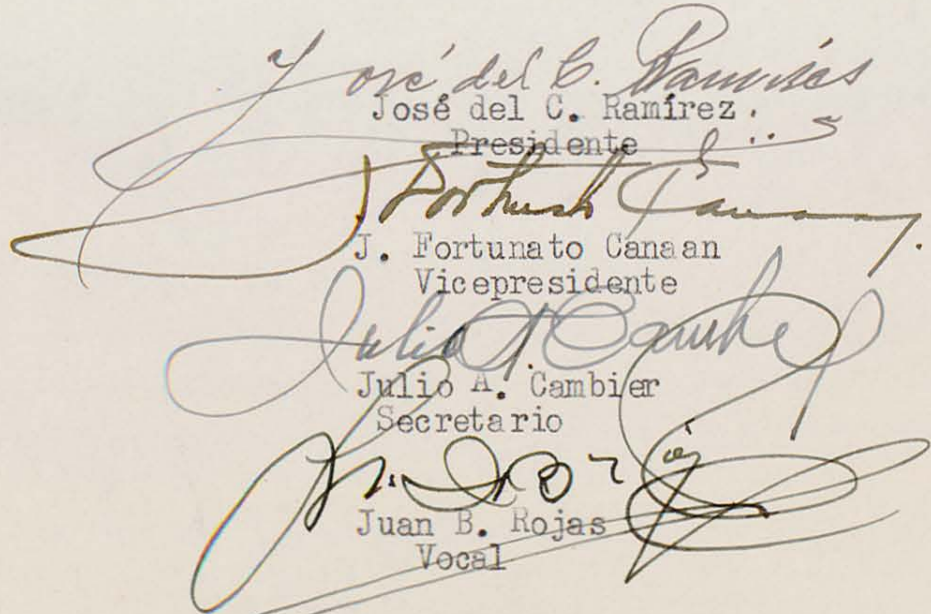 José del C. Ramírez
José del C. Ramírez.
Presidente
J. Fortunato Canaan
Vicepresidente
Julio A. Cambier
Julio A. Cambier
Secretario
Juan B. Rojas
Vocal